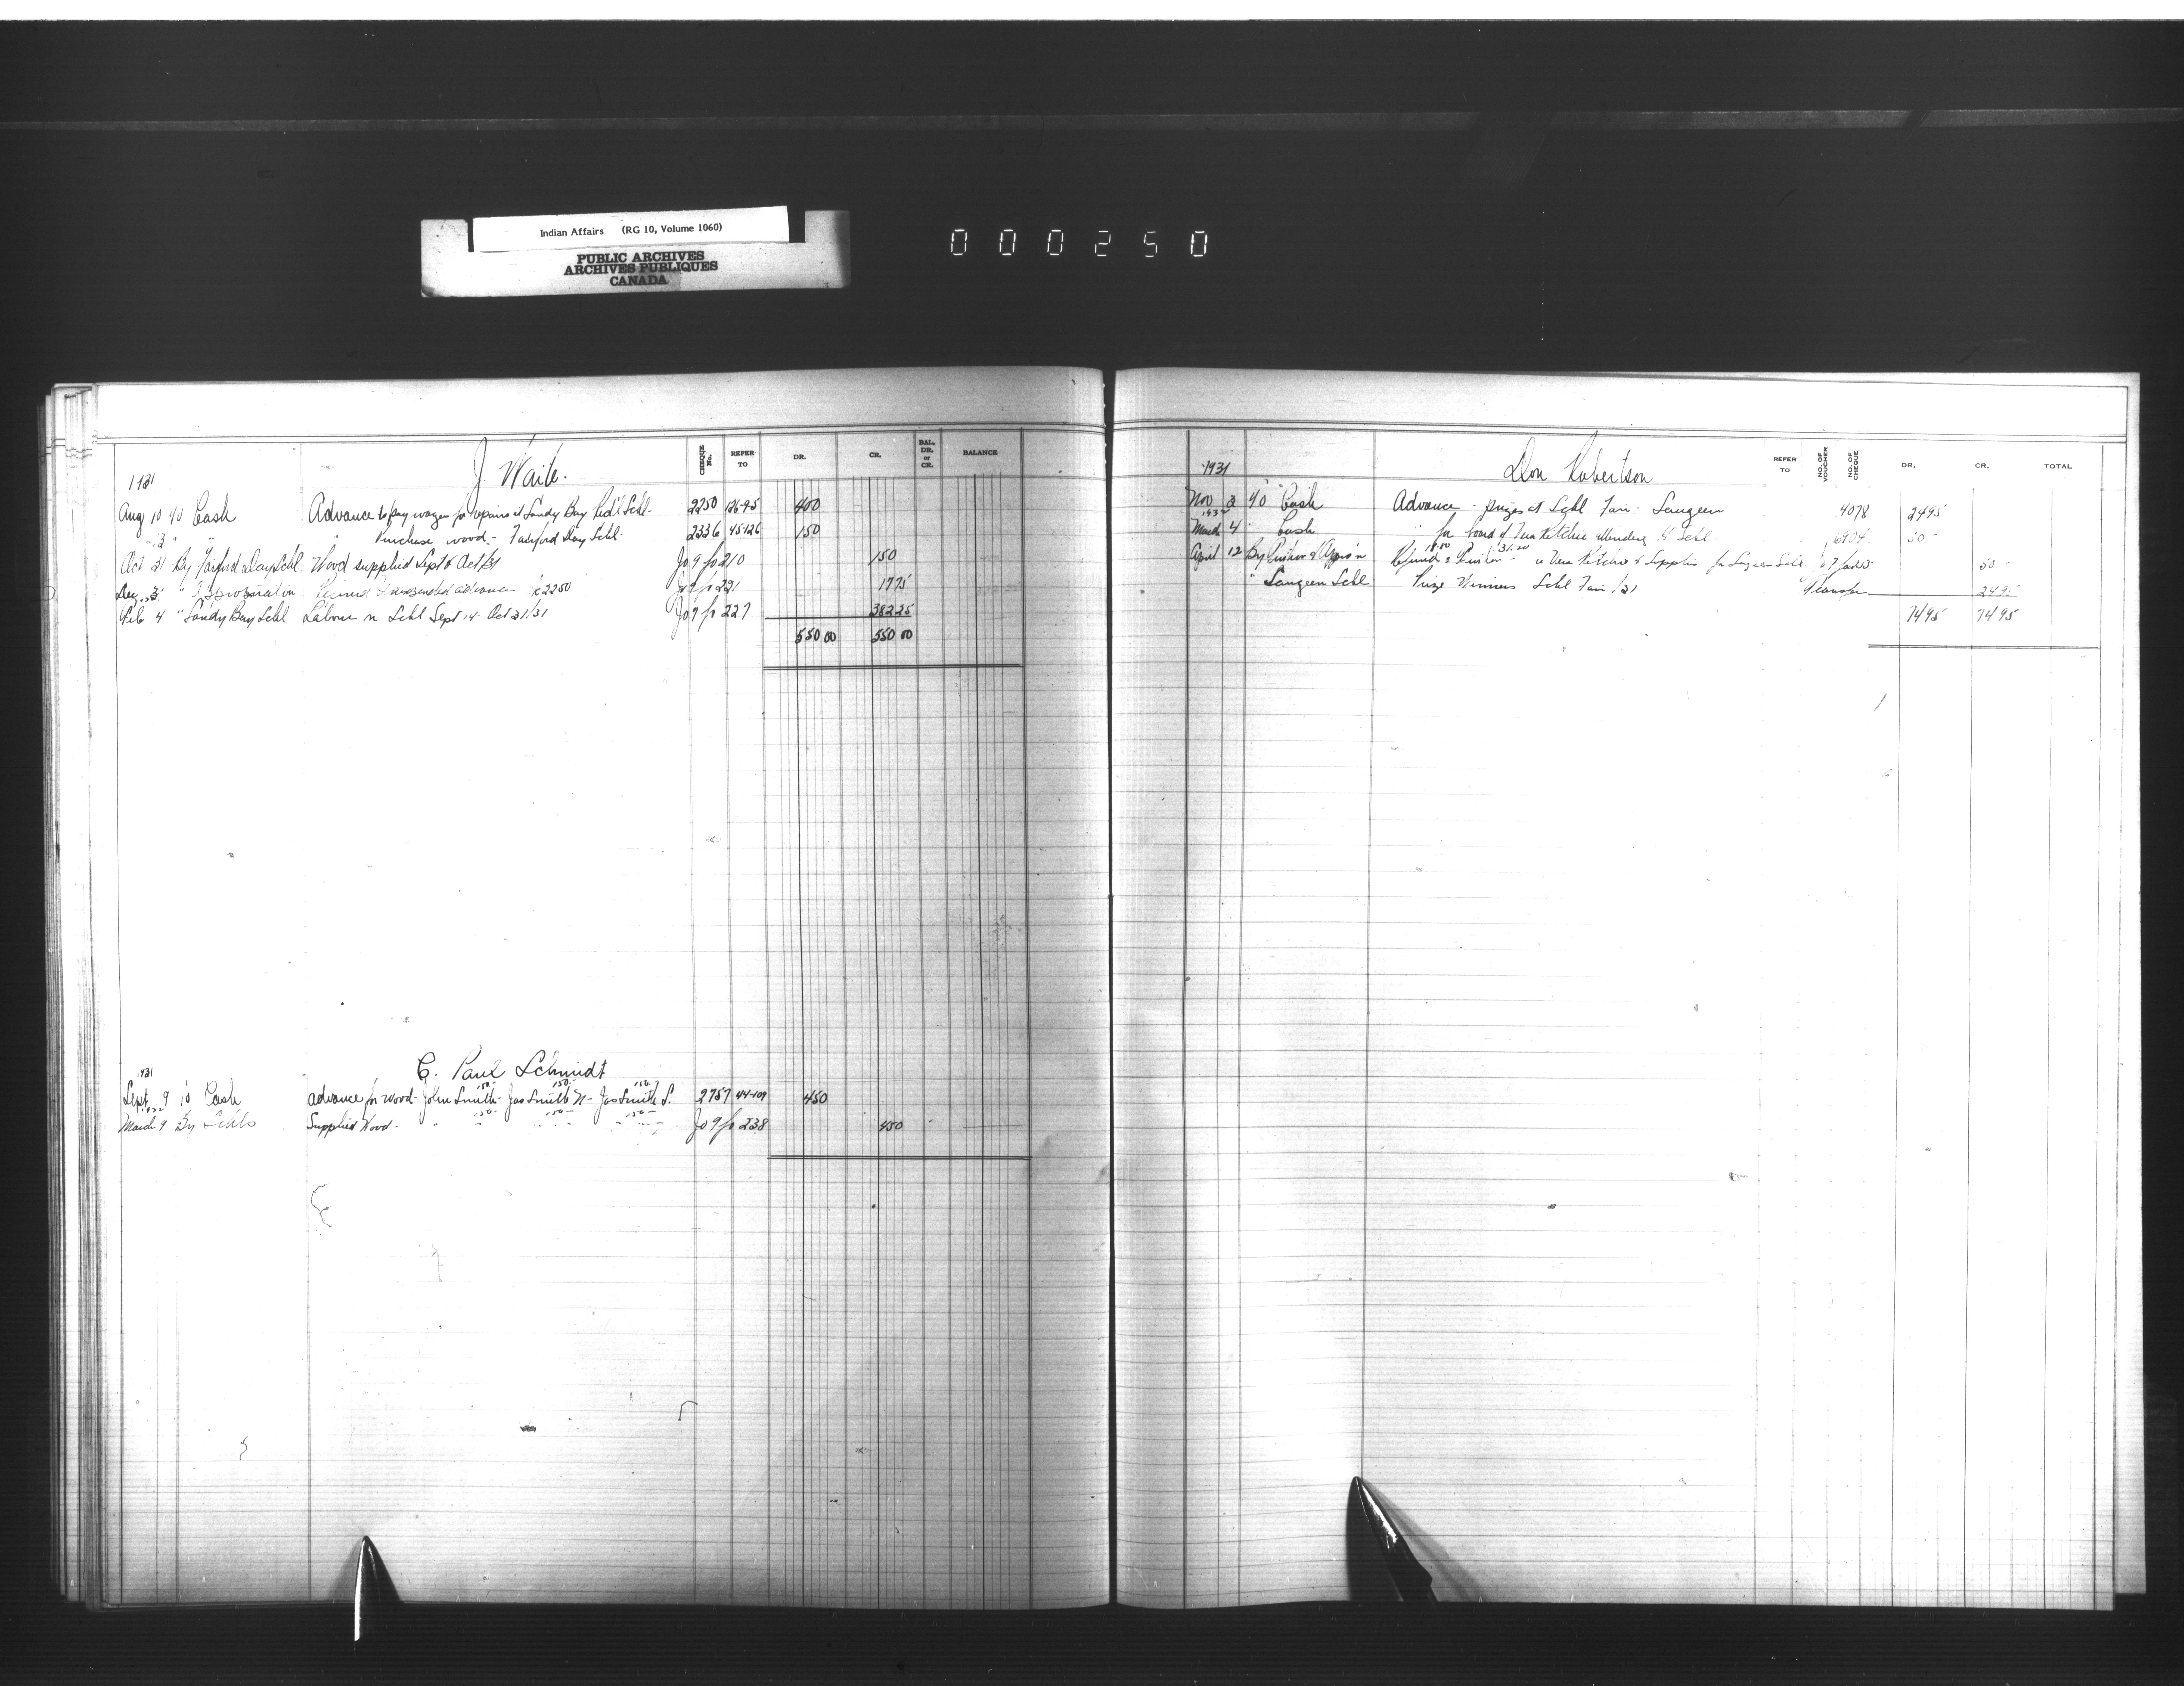 Indian Affairs (RG 10, Volume 1060)
PUBLIC ARCHIVES
ARCHIVES PUBLIQUES
CANADA
000250
J. Waite.
CHEQUE No. REFER TO DR. CR. BAL. DR. or CR. BALANCE
1931
Aug 10 To Cash Advance to pay wages for repairs at Sandy Bay Schl. 2250 126-95 400
" " " Purchase wood - Fairford Day Schl. 2336 45-126 150
Oct 31 By Fairford Day Schl Wood supplied Sept & Oct/31 Jo 9 fo 210 150
" Appropriation Refund unexpended advance K2250 Jo 9 fo 221 1775
Feb 4 " Sandy Bay Schl Labour on Schl Sept 14 - Oct 31/31 Jo 9 fo 227 38225
550 00 550 00
C. Paul Schmidt
1931
Sept 9 To Cash advance for wood - John Smith 150- Jas Smith N 150- Jas Smith S. 150- 2757 44-109 450
1932
March 9 By Schls Supplied Wood - " 150- " 150- " 150- Jo 9 fo 238 450
Don Robertson
REFER TO NO. OF VOUCHER NO. OF CHEQUE DR. CR. TOTAL
1931
Nov 3 To Cash Advance - prizes at Schl Fair - Saugeen 4078 2495
1932
March 4 " Cash " for board of Vera Ritchie attending H Schl 6904 50-
April 12 By Refund Vera Ritchie & Supplies for Saugeen Schl 50-
" Saugeen Schl Prize Winners Schl Fair /31 Transfer 2495
7495 7495